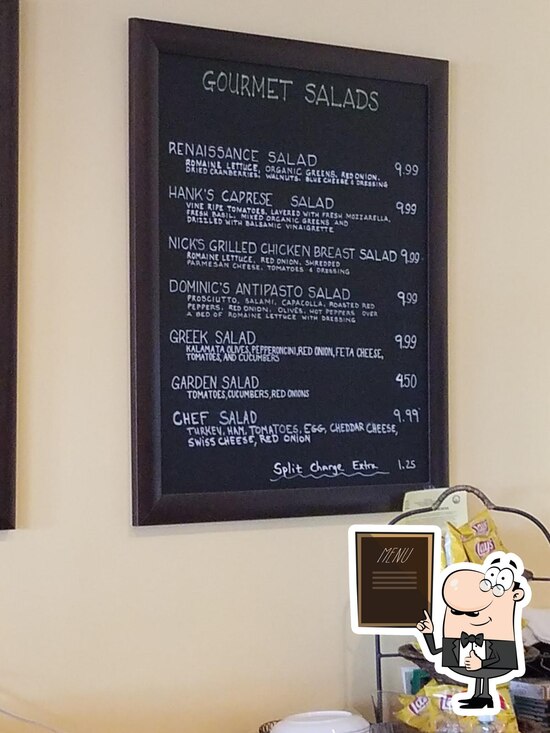 GOURMET SALADS
RENAISSANCE SALAD 9.99
ROMAINE LETTUCE, ORGANIC GREENS, RED ONION,
DRIED CRANBERRIES, WALNUTS, BLUE CHEESE & DRESSING
HANK'S CAPRESE SALAD 9.99
VINE RIPE TOMATOES, LAYERED WITH FRESH MOZZARELLA,
FRESH BASIL, MIXED ORGANIC GREENS AND
DRIZZLED WITH BALSAMIC VINAIGRETTE
NICK'S GRILLED CHICKEN BREAST SALAD 9.99
ROMAINE LETTUCE, RED ONION, SHREDDED
PARMESAN CHEESE, TOMATOES & DRESSING
DOMINIC'S ANTIPASTO SALAD 9.99
PROSCIUTTO, SALAMI, CAPACOLLA, ROASTED RED
PEPPERS, RED ONION, OLIVES, HOT PEPPERS OVER
A BED OF ROMAINE LETTUCE WITH DRESSING
GREEK SALAD 9.99
KALAMATA OLIVES, PEPPERONCINI, RED ONION, FETA CHEESE,
TOMATOES, AND CUCUMBERS
GARDEN SALAD 4.50
TOMATOES, CUCUMBERS, RED ONIONS
CHEF SALAD 9.99
TURKEY, HAM, TOMATOES, EGG, CHEDDAR CHEESE,
SWISS CHEESE, RED ONION
Split Charge Extra 1.25
Lay's
MENU